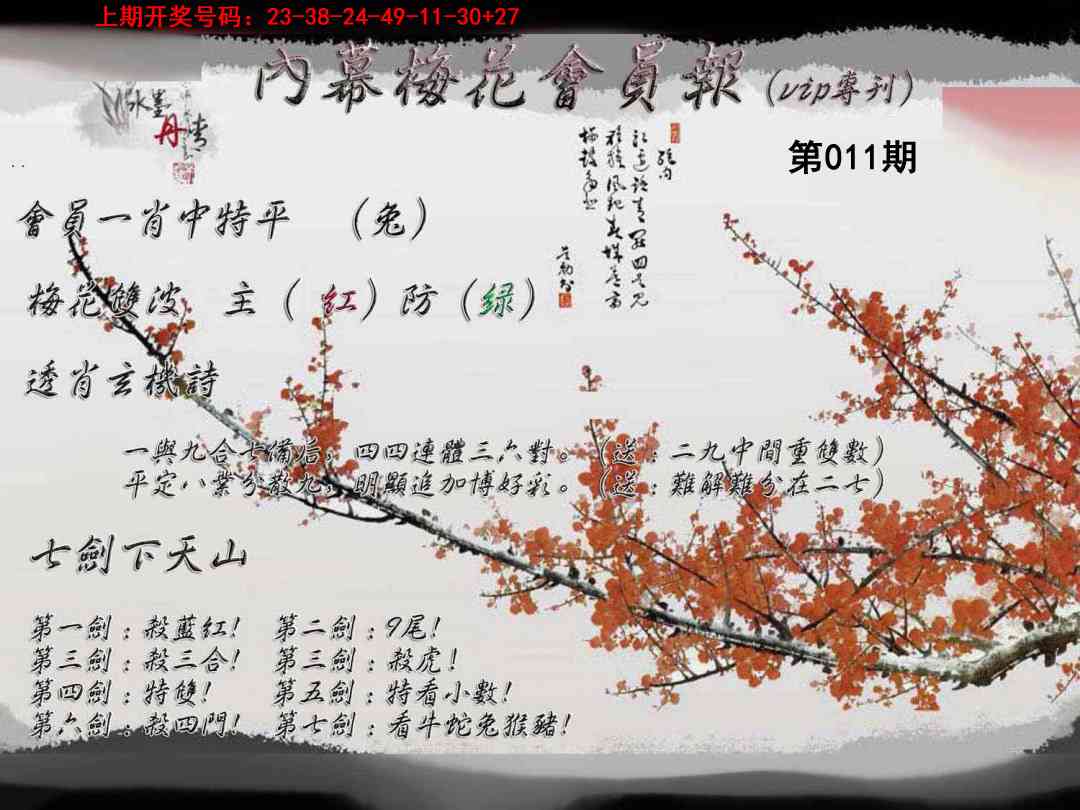 上期开奖号码：23-38-24-49-11-30+27
內幕梅花會員報（vip專刊）
水墨
丹青
第011期
會員一肖中特平 （兔）
梅花雙波 主（紅）防（緑）
透肖玄機詩
一與九合七備后，四四連體三六對。（送：二九中間重雙數）
平定八業分散九，明顯追加博好彩。（送：難解難分在二七）
七劍下天山
第一劍：殺藍紅！ 第二劍：9尾！
第三劍：殺三合！ 第三劍：殺虎！
第四劍：特雙！ 第五劍：特看小數！
第六劍：殺四門！ 第七劍：看牛蛇兔猴豬！